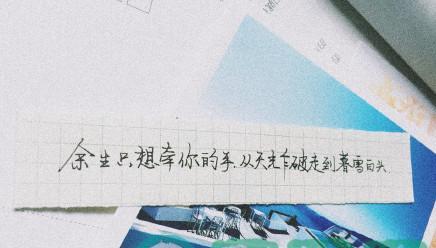 余生只想牵你的手.从天光乍破走到暮雪白头.